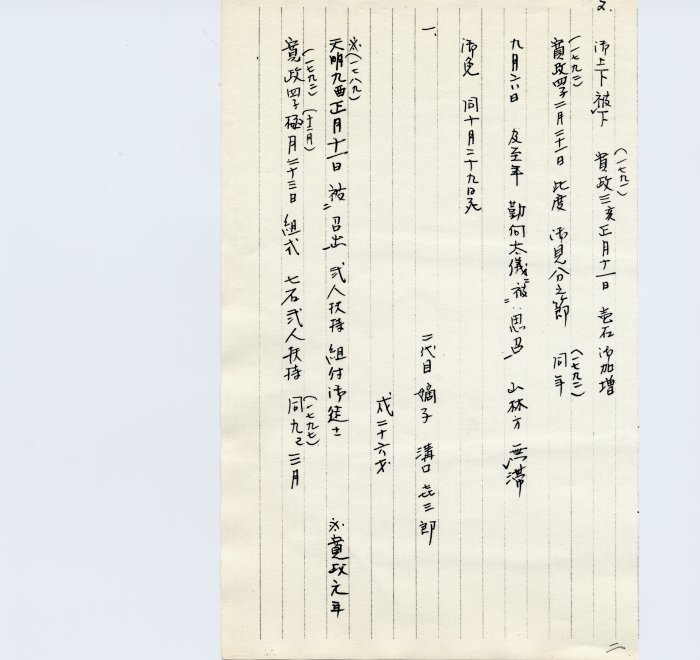 2.
御上下被下 寛政三亥正月十一日 壱石御加増
(一七九一)
寛政四子二月二十一日 此度 御見分之節 同年
(一七九二) (一七九二)
九月六日 及至年 勤向太儀被思召 山林方 無滞
御免 同十月二十九日死
一、 二代目 嫡子 溝口㐂三郎
戌二十六才
※(一七八九)
天明九酉正月十一日 被召出 弐人扶持 組付御徒士 ※寛政元年
(一七九二) (十二月)
寛政四子極月二十三日 組弐 七石弐人扶持 同九巳三月
(一七九七)
二